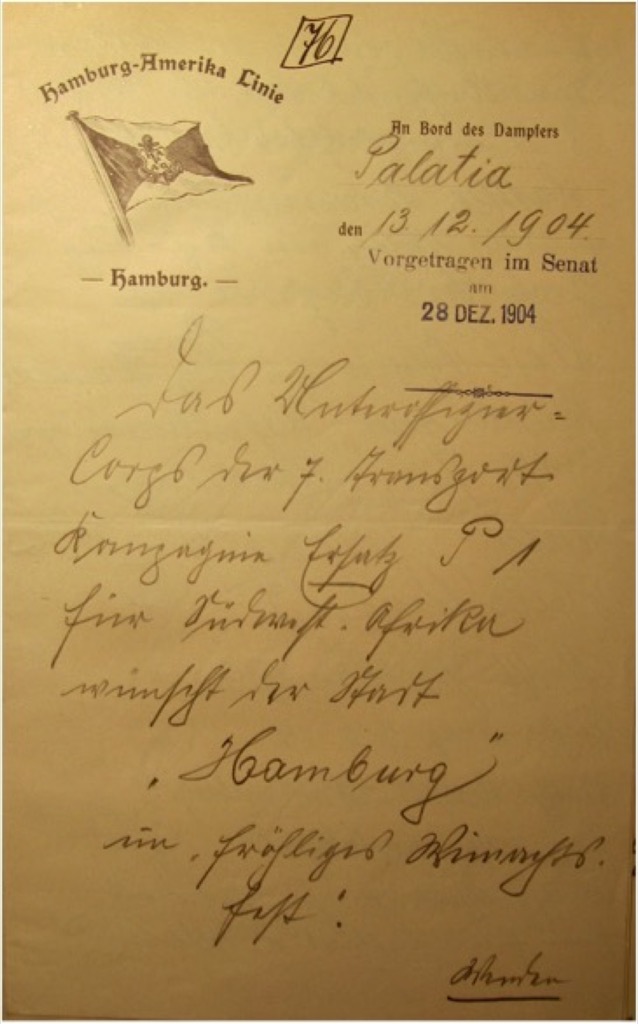 76
Hamburg-Amerika Linie
Hamburg.
An Bord des Dampfers
Palatia
den 13. 12. 1904.
Vorgetragen im Senat
am
28 DEZ. 1904
Das Unteroffizier-
Corps der 7. Transport
Kompagnie Ersatz P 1
für Südwest-Afrika
wünscht der Stadt
„Hamburg"
ein „fröhliges Weinachts-
fest".
Wenden